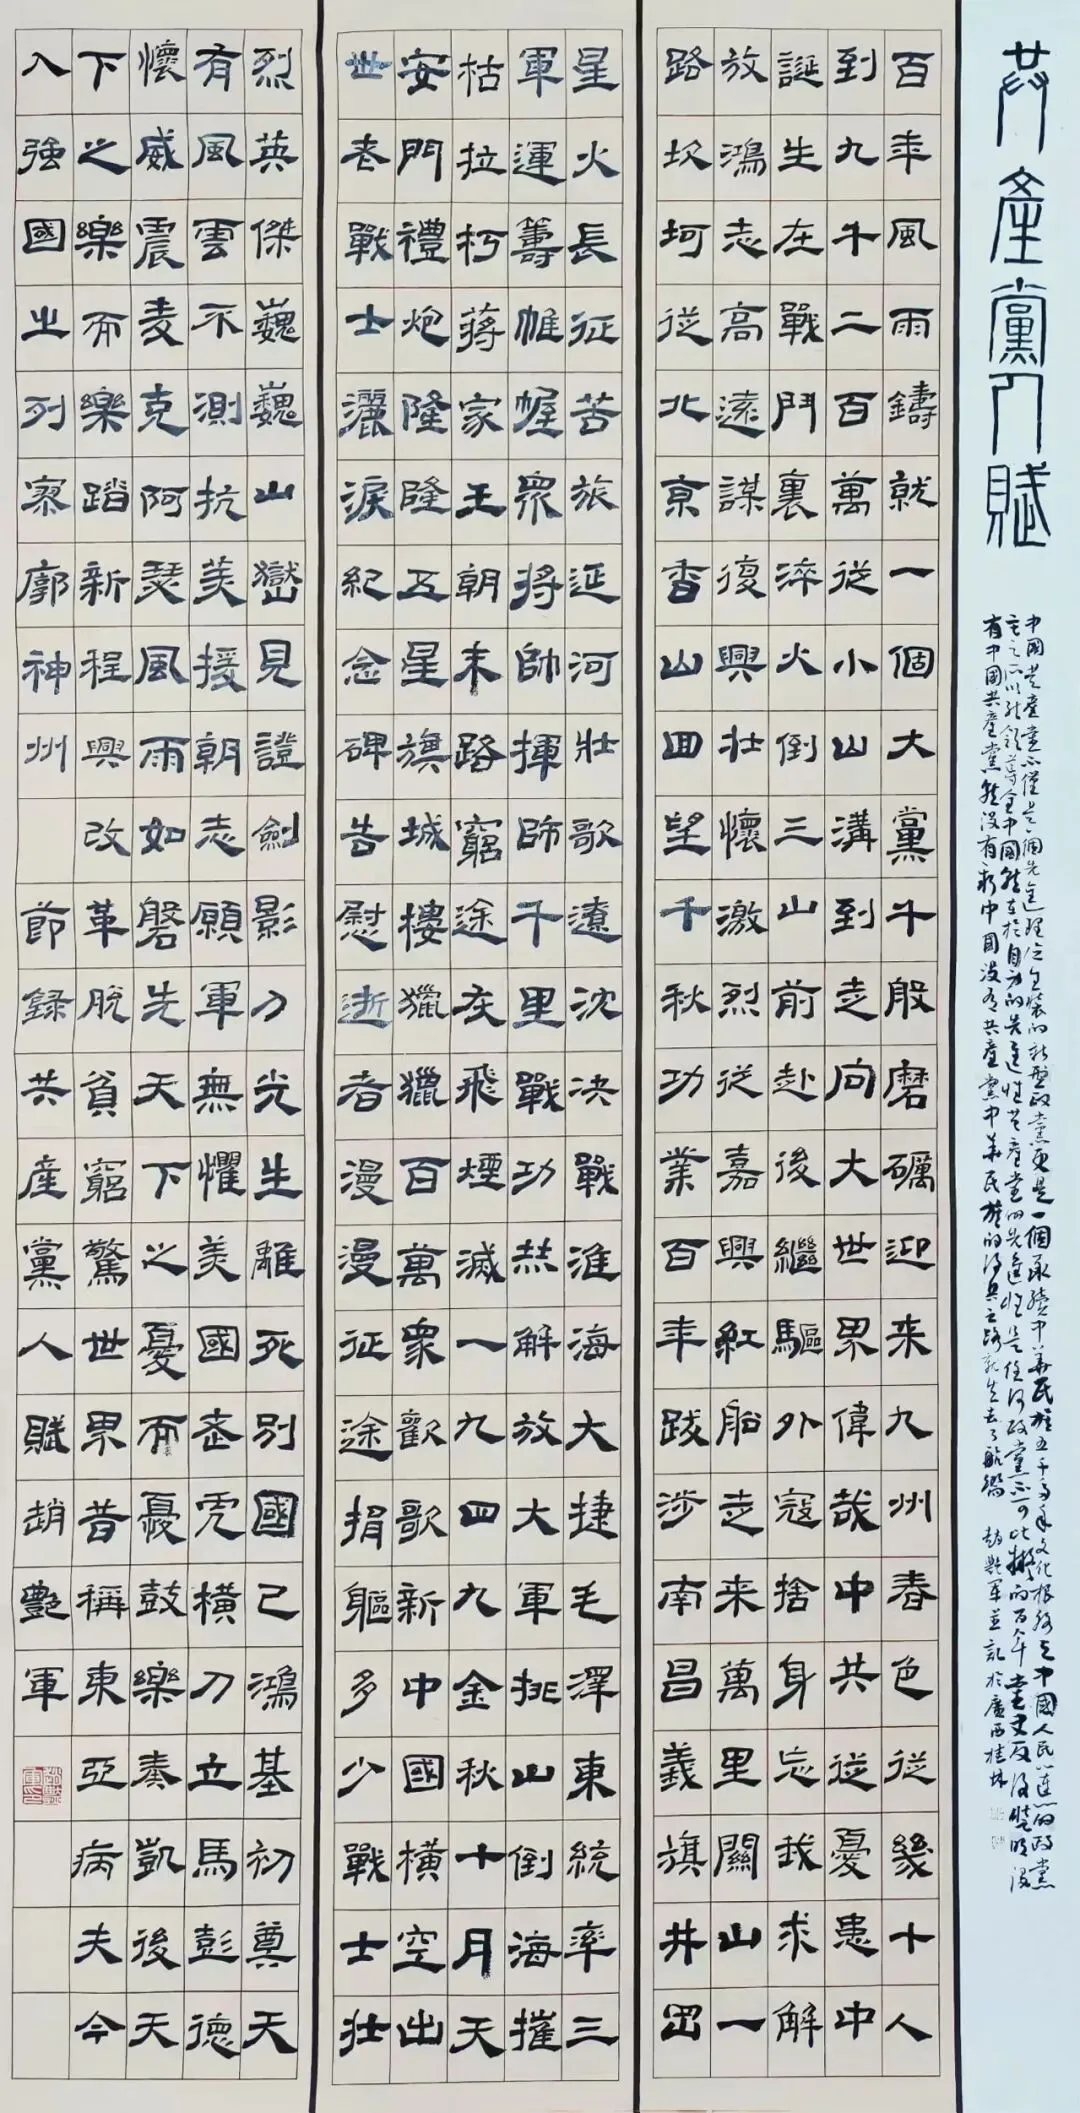 共產黨人賦
中國共產黨不僅是一個先進理論包裝的新型政黨更是一個承續中華民族五千多年文化根脈之中國人民心連心的政黨
它之所以能領導全中國就在於自身的先進性共產黨的先進性是任何政黨不可比擬的百年黨史反復證明沒
有中國共產黨就沒有新中國沒有共產黨中華民族的復興之路就失去了航嚮 趙艷軍並記於廣西桂林
百年風雨鑄就一個大黨千般磨礪迎来九州春色從幾十人
到九千二百萬從小山溝到走向大世界偉哉中共從憂患中
誕生在戰鬥裏淬火倒三山前赴後繼驅外寇捨身忘我求解
放鴻志高遠謀復興壯懷激烈從嘉興紅船走来萬里關山一
路坎坷從北京香山回望千秋功業百年跋涉南昌義旗井岡
星火長征苦旅延河壯歌遼沈決戰淮海大捷毛澤東統率三
軍運籌帷幄眾將帥揮師千里戰功赫解放大軍排山倒海摧
枯拉朽蔣家王朝末路窮途灰飛煙滅一九四九金秋十月天
安門禮炮隆隆五星旗城樓獵獵百萬眾歡歌新中國橫空出
世老戰士灑淚紀念碑告慰逝者漫漫征途捐軀多少戰士壯
烈英傑巍巍山嶽見證劍影刀光生離死別國已鴻基初奠天
有風雲不測抗美援朝志願軍無懼美國老虎橫刀立馬彭德
懷威震麥克阿瑟風雨如磐先天下之憂而憂鼓樂奏凱後天
下之樂而樂踏新程興改革脫貧窮驚世界昔稱東亞病夫今
入強國之列寥廓神州 節錄共產黨人賦趙艷軍